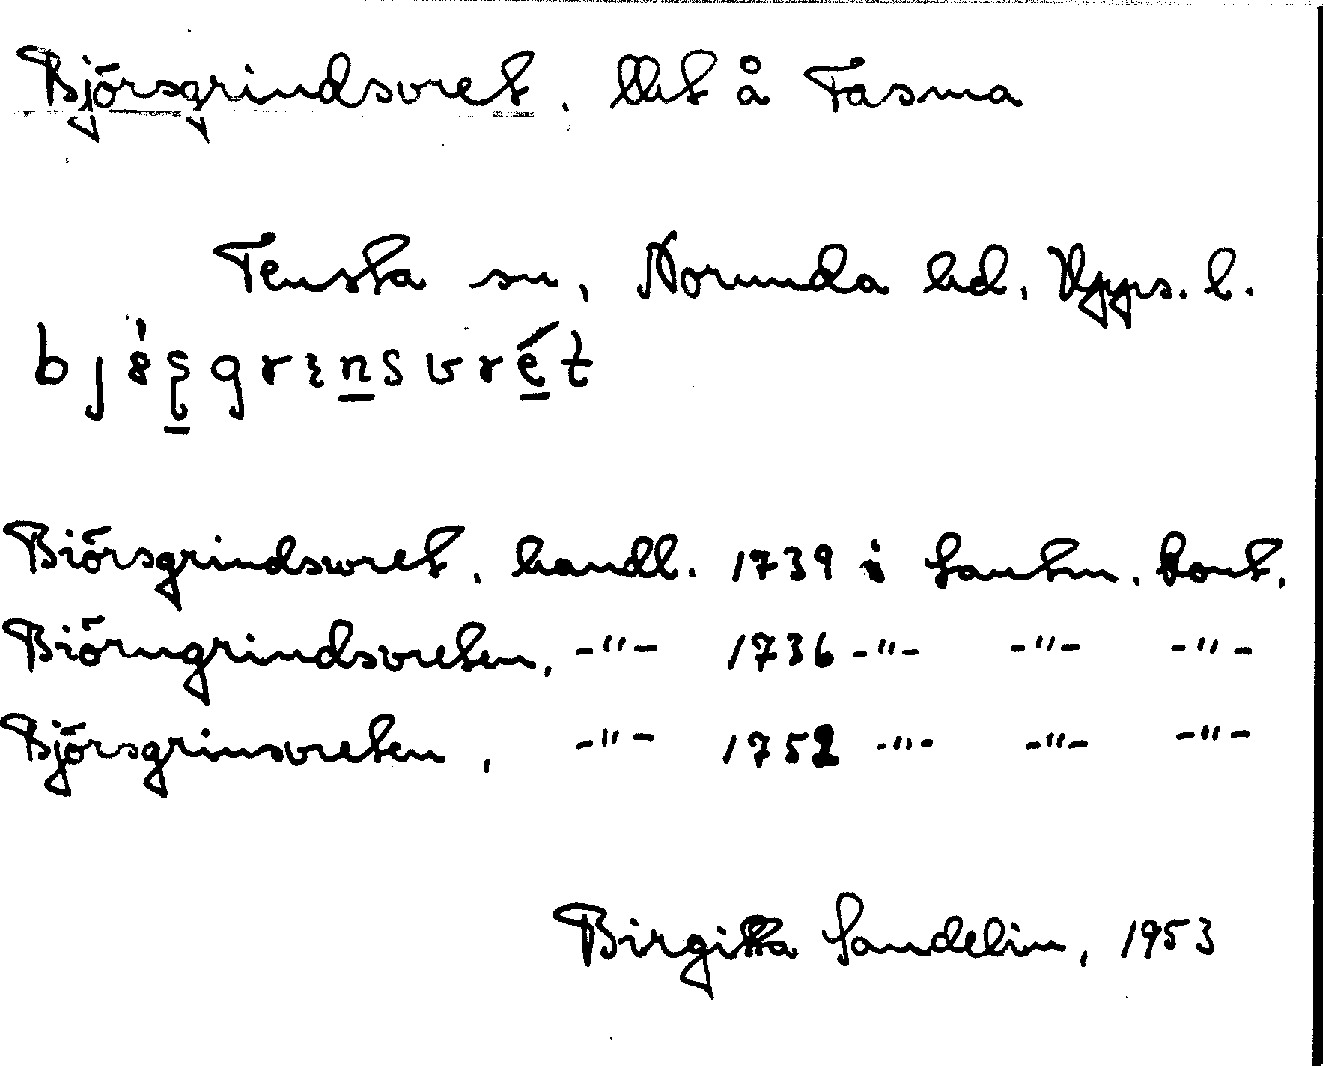 Björsgrindsvret, litt å Fasma
Tensta sn, Norunda hd, Upps. l.
Biörsgrindswret, handl. 1739 i Lantm. kont.
Biörngrindsvreten, -"- 1736 -"- -"- -"-
Björsgrinsvreten, -"- 1752 -"- -"- -"-
Birgitta Sandelin, 1953